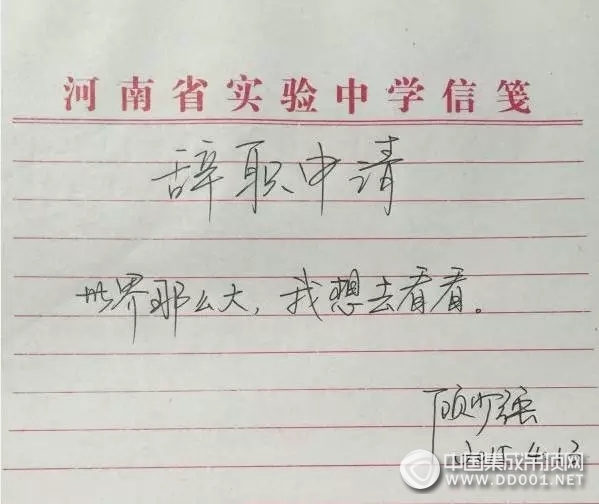 河南省实验中学信笺
辞职申请
世界那么大，我想去看看。
顾少强
2015.4.13
中国集成吊顶网
WWW.DD001.NET